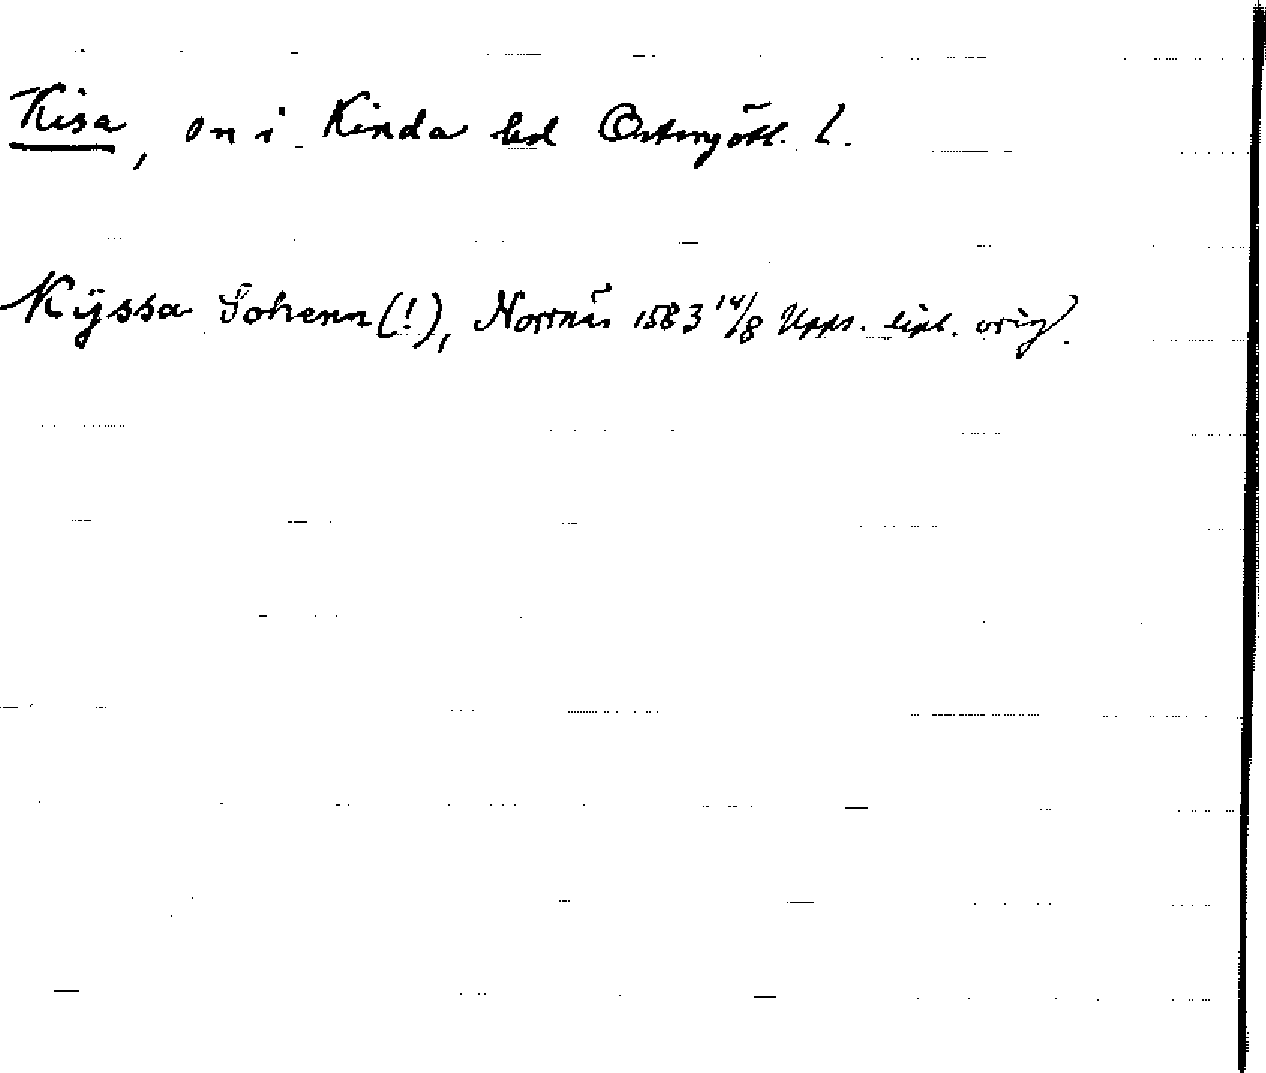 Kisa, on i Kinda hd Östergötl. l.
Kÿssa Sohenn (!), Norrnäs 1583 14/8 Upps. dipl. orig.